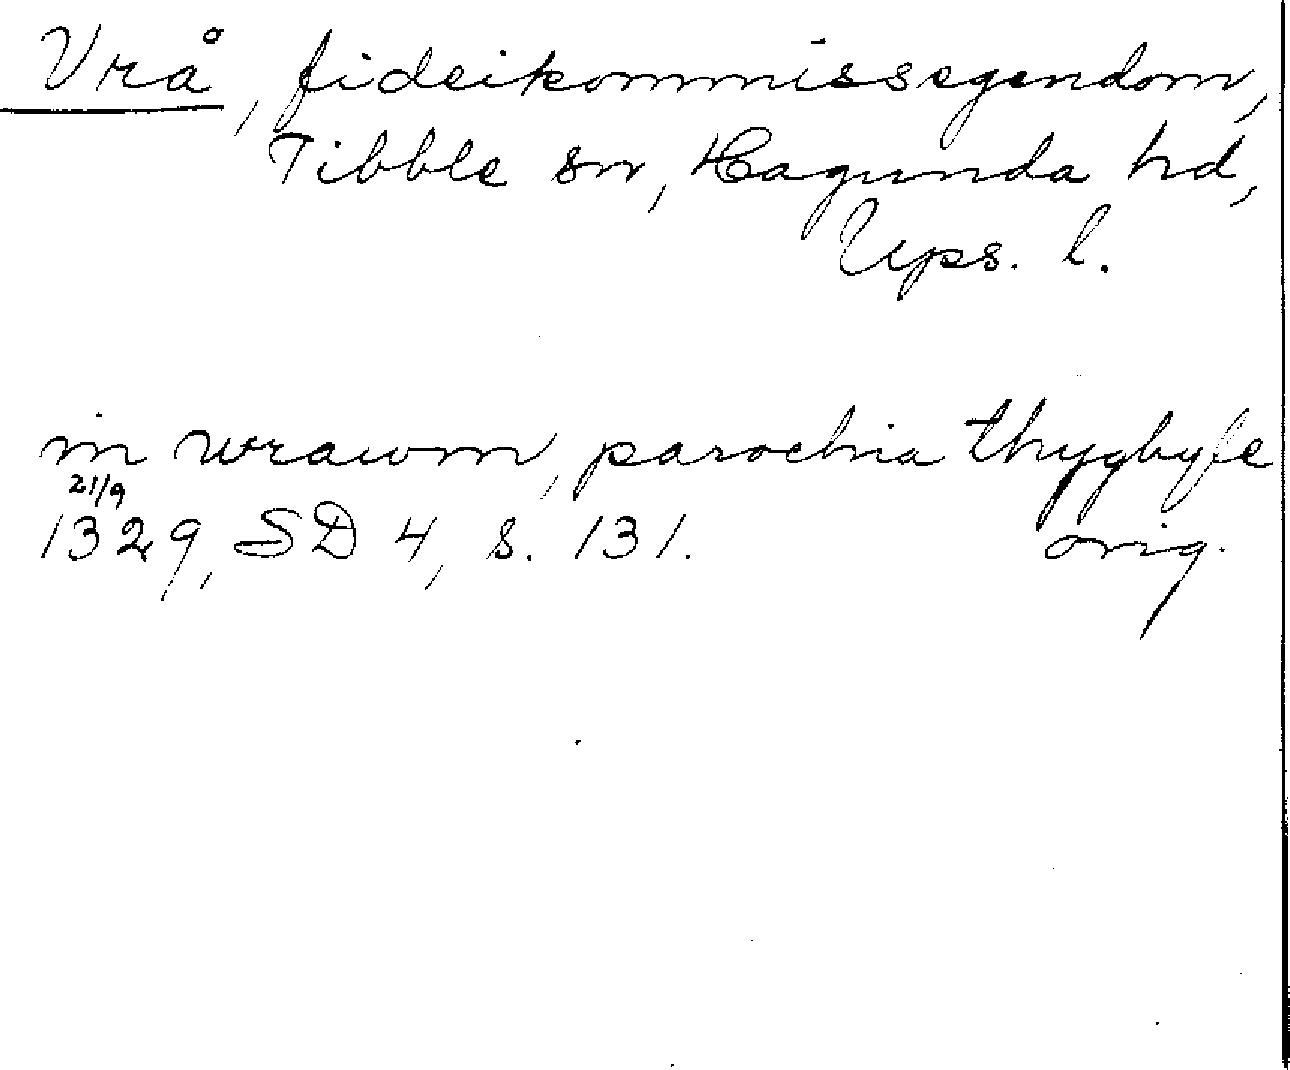 Vrå, fideikommissegendom,
Tibble sn, Hagunda hd,
Upps. l.
in wrawm, parochia thygbyle
21/9
1329, SD 4, s. 131. orig.